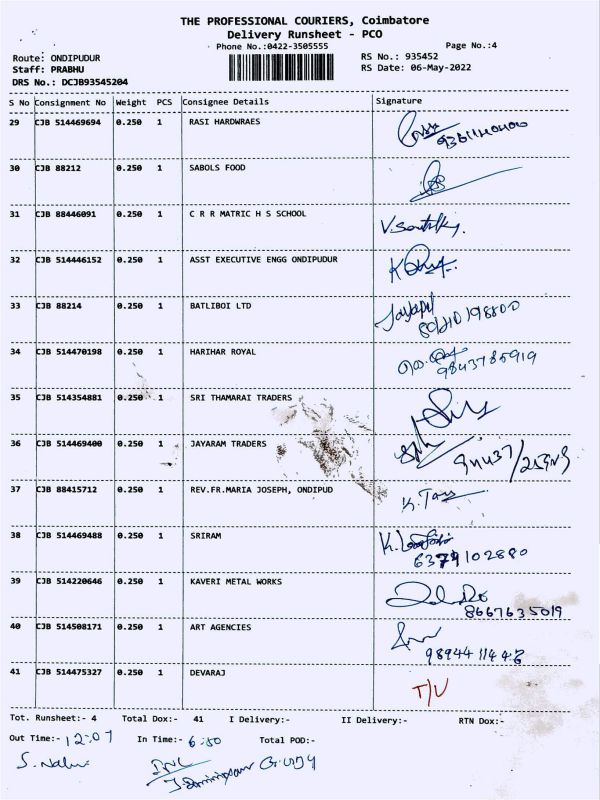 THE PROFESSIONAL COURIERS, Coimbatore
Delivery Runsheet - PCO
Phone No.:0422-3505555 Page No.:4
Route: ONDIPUDUR RS No.: 935452
Staff: PRABHU RS Date: 06-May-2022
DRS No.: DCJB93545204
S No Consignment No Weight PCS Consignee Details Signature
29 CJB 514469694 0.250 1 RASI HARDWRAES
30 CJB 88212 0.250 1 SABOLS FOOD
31 CJB 88446091 0.250 1 C R R MATRIC H S SCHOOL
32 CJB 514446152 0.250 1 ASST EXECUTIVE ENGG ONDIPUDUR
33 CJB 88214 0.250 1 BATLIBOI LTD
34 CJB 514470198 0.250 1 HARIHAR ROYAL
9843785919
35 CJB 514354881 0.250 1 SRI THAMARAI TRADERS
36 CJB 514469400 0.250 1 JAYARAM TRADERS
37 CJB 88415712 0.250 1 REV.FR.MARIA JOSEPH, ONDIPUD
38 CJB 514469488 0.250 1 SRIRAM
6379102880
39 CJB 514220646 0.250 1 KAVERI METAL WORKS
8667635019
40 CJB 514508171 0.250 1 ART AGENCIES
41 CJB 514475327 0.250 1 DEVARAJ T/U
Tot. Runsheet:- 4 Total Dox:- 41 I Delivery:- II Delivery:- RTN Dox:-
Out Time:- 12:07 In Time:- 6:50 Total POD:-